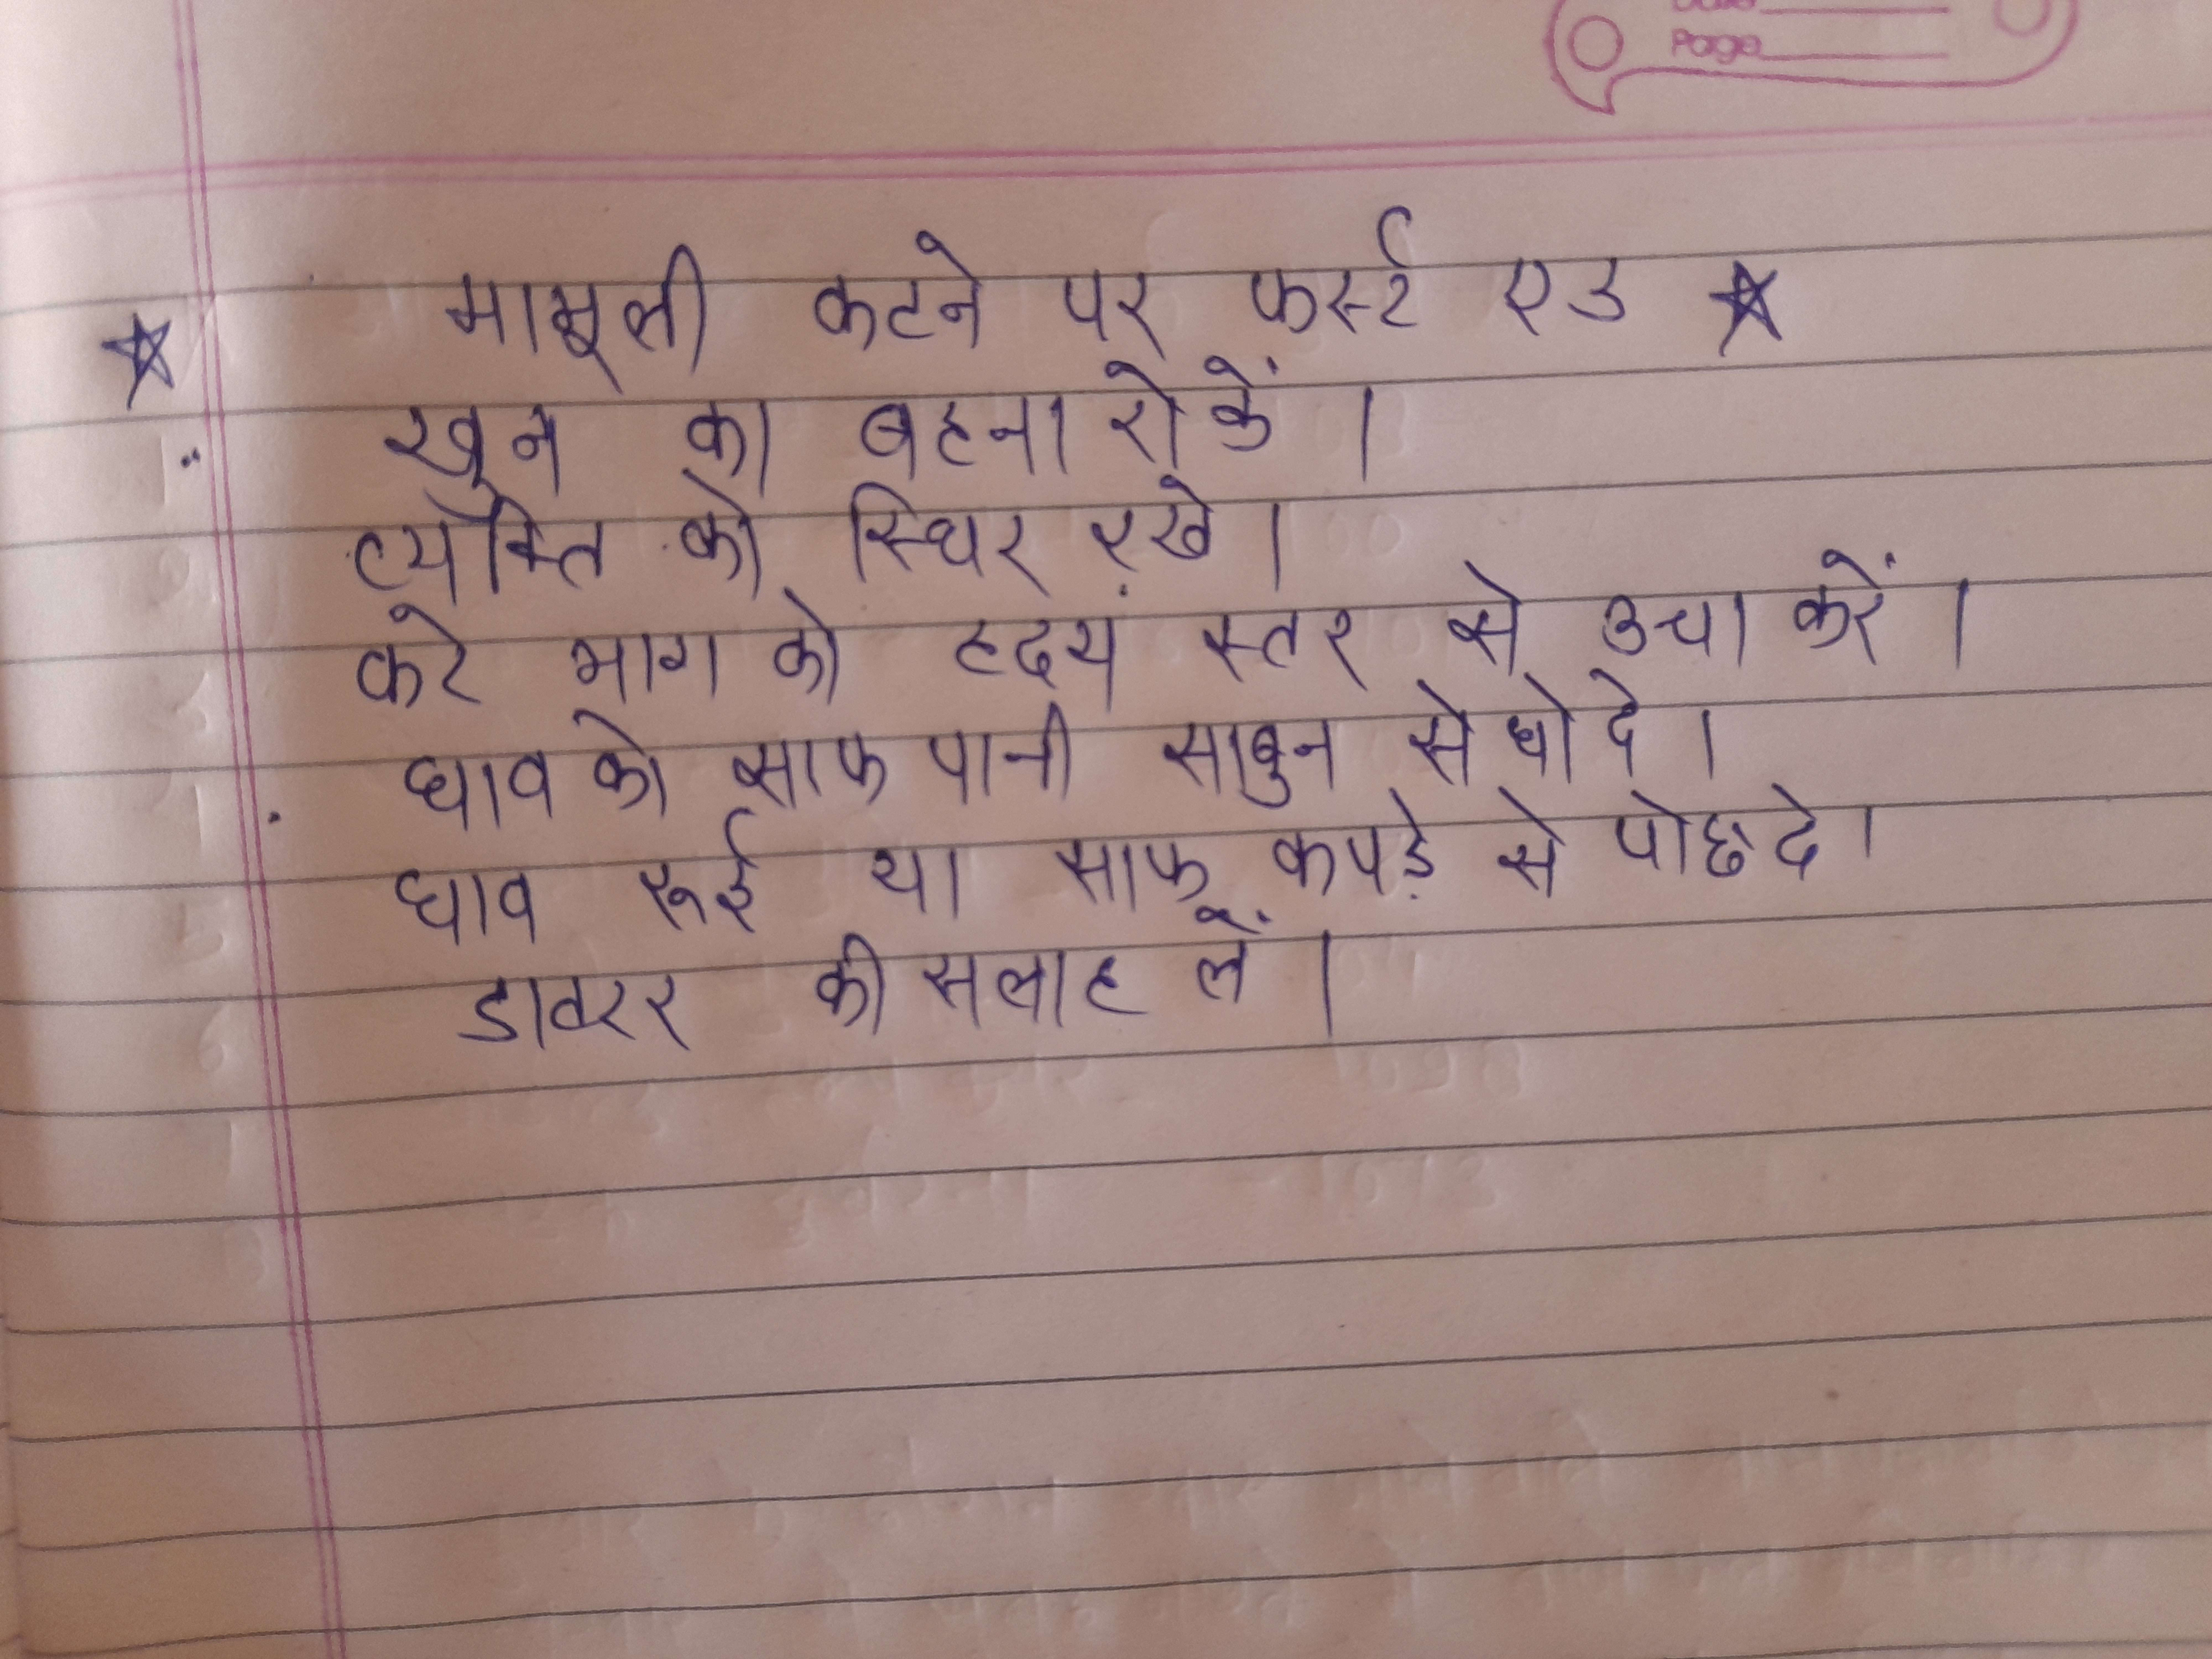 Page
★ मामूली कटने पर फर्स्ट एड ★
खून का बहना रोकें।
व्यक्ति को स्थिर रखे।
कटे भाग को हदय स्तर से उचा करें।
घाव को साफ पानी साबुन से धो दे।
घाव रूई या साफ कपड़े से पोछ दे।
डाक्टर की सलाह लें।